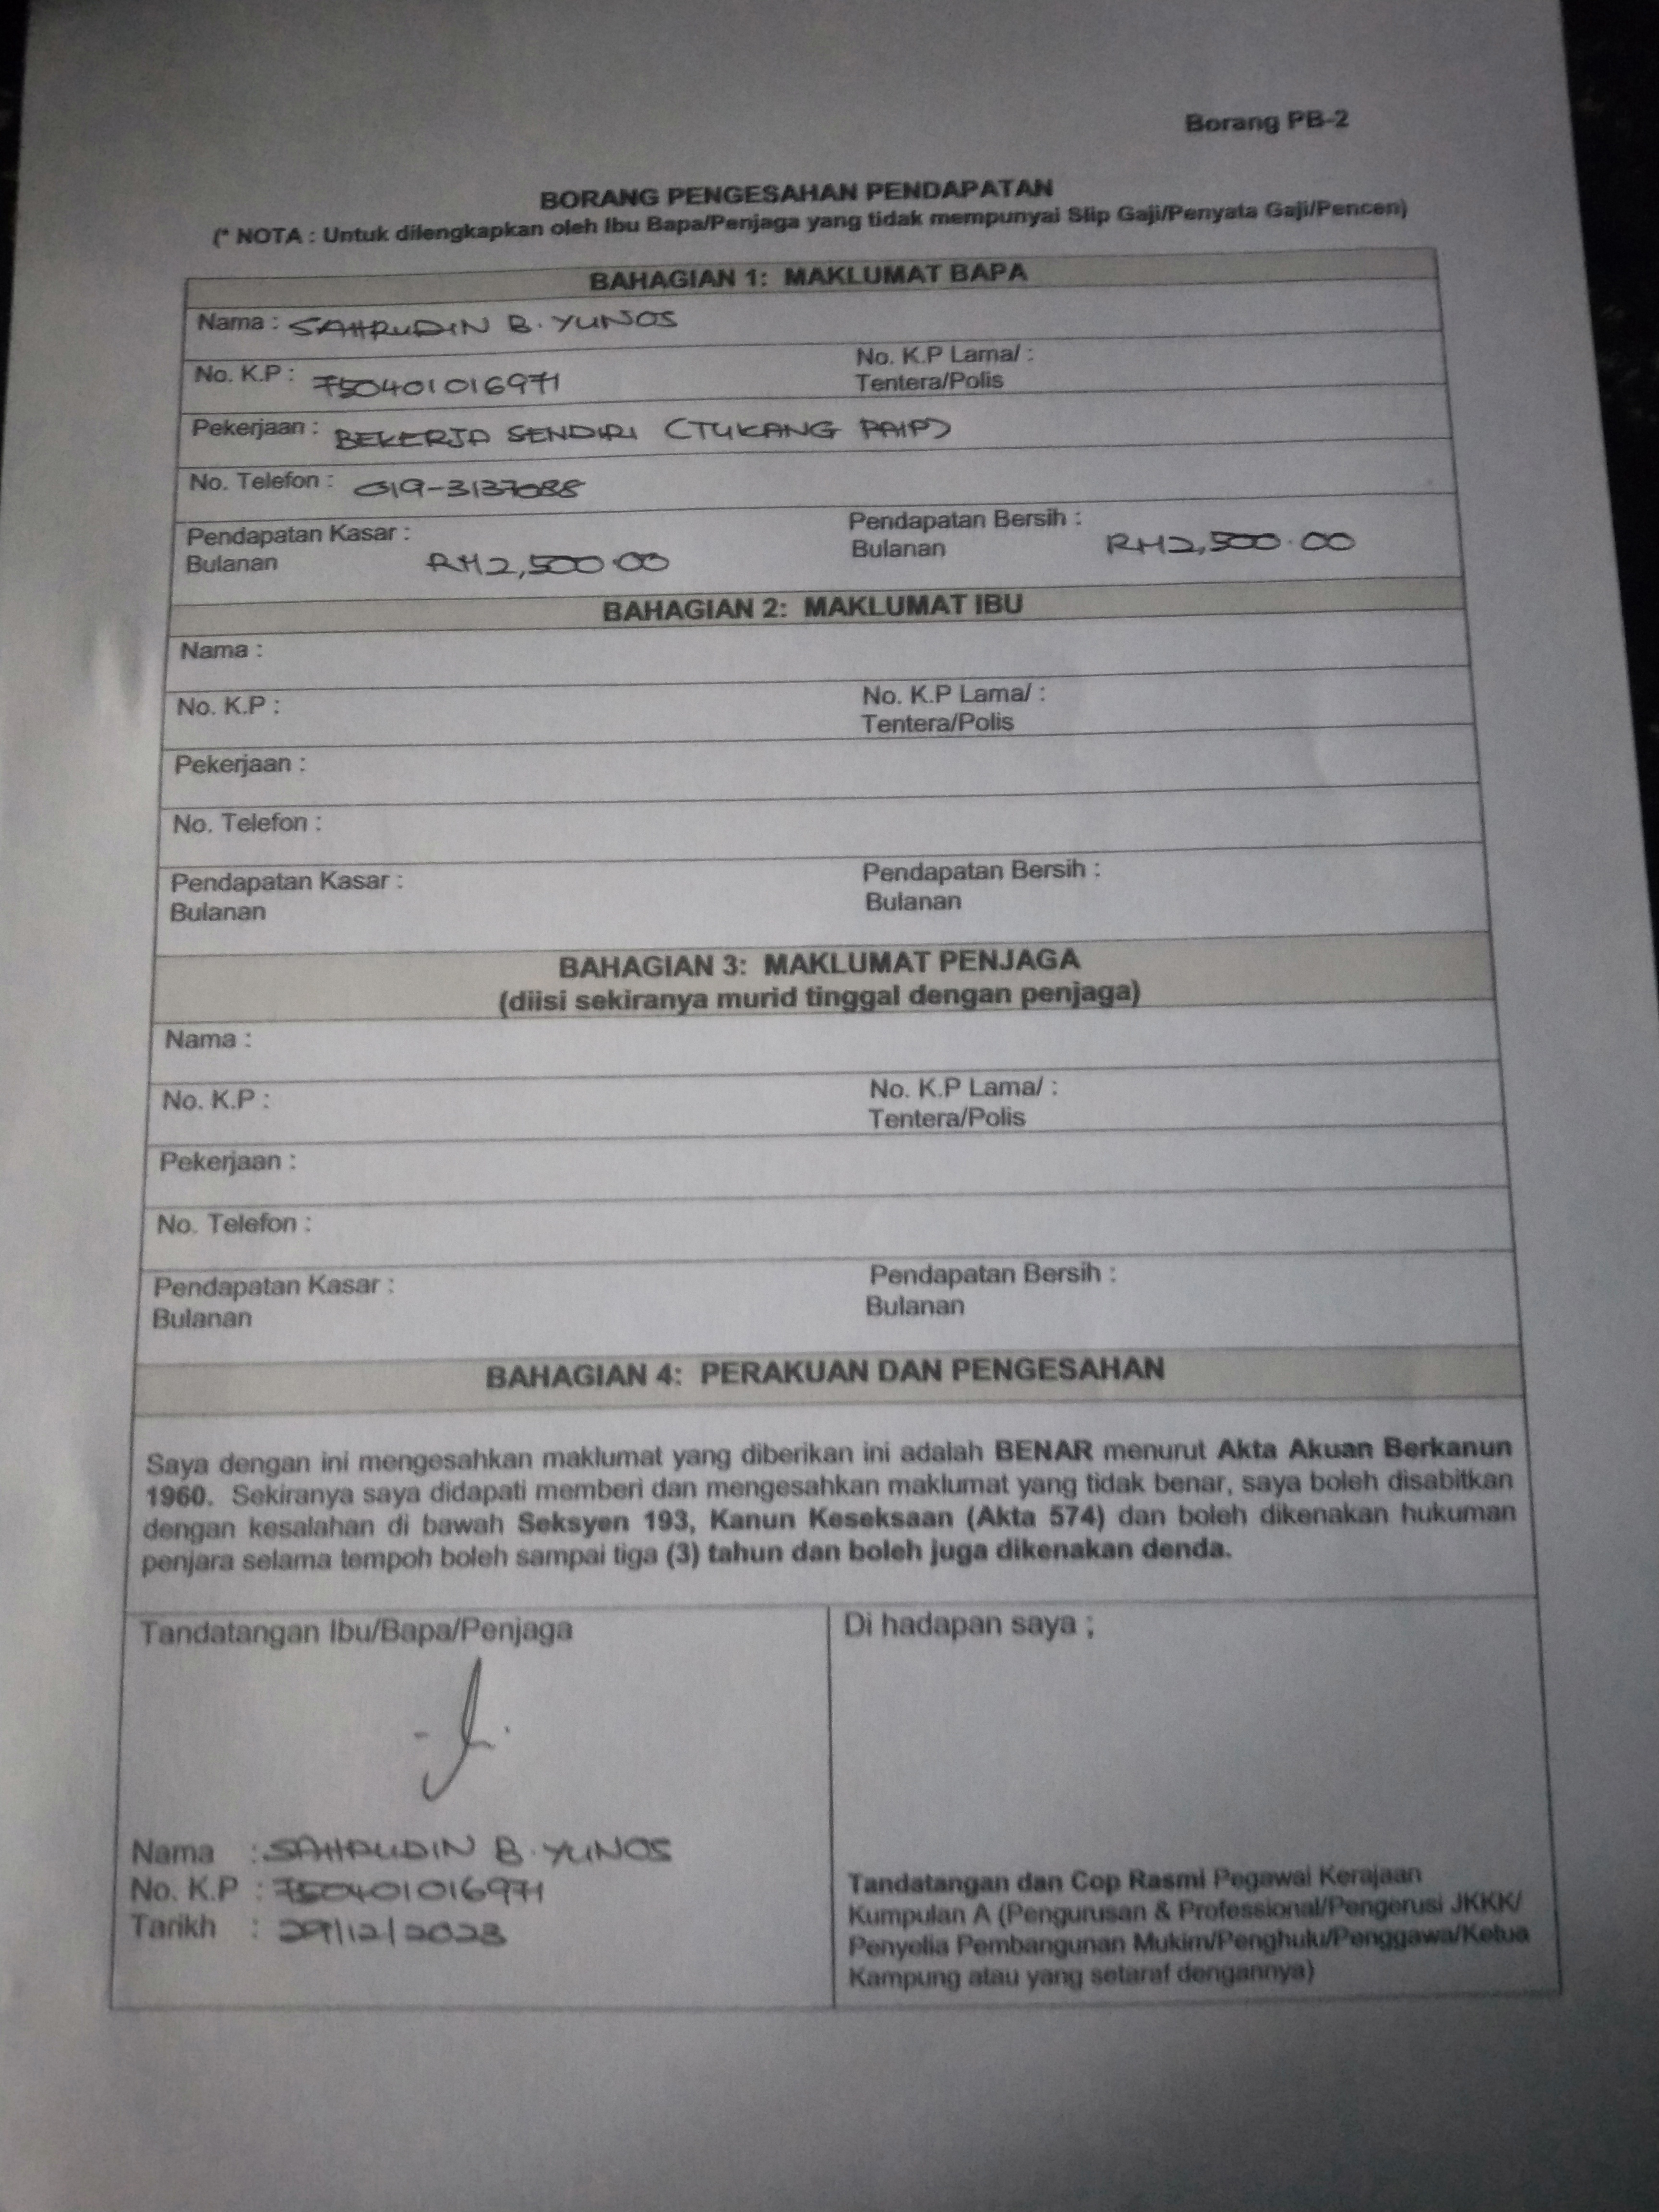 Borang PB-2
BORANG PENGESAHAN PENDAPATAN
(* NOTA : Untuk dilengkapkan oleh Ibu Bapa/Penjaga yang tidak mempunyai Slip Gaji/Penyata Gaji/Pencen)
BAHAGIAN 1: MAKLUMAT BAPA
Nama : SAHRUDIN B. YUNOS
No. K.P : 750401016971 No. K.P Lama/ :
Tentera/Polis
Pekerjaan : BEKERJA SENDIRI (TUKANG PAIP)
No. Telefon : 019-3137088
Pendapatan Kasar : Pendapatan Bersih :
Bulanan RM2,500.00 Bulanan RM2,500.00
BAHAGIAN 2: MAKLUMAT IBU
Nama :
No. K.P : No. K.P Lama/ :
Tentera/Polis
Pekerjaan :
No. Telefon :
Pendapatan Kasar : Pendapatan Bersih :
Bulanan Bulanan
BAHAGIAN 3: MAKLUMAT PENJAGA
(diisi sekiranya murid tinggal dengan penjaga)
Nama :
No. K.P : No. K.P Lama/ :
Tentera/Polis
Pekerjaan :
No. Telefon :
Pendapatan Kasar : Pendapatan Bersih :
Bulanan Bulanan
BAHAGIAN 4: PERAKUAN DAN PENGESAHAN
Saya dengan ini mengesahkan maklumat yang diberikan ini adalah BENAR menurut Akta Akuan Berkanun
1960. Sekiranya saya didapati memberi dan mengesahkan maklumat yang tidak benar, saya boleh disabitkan
dengan kesalahan di bawah Seksyen 193, Kanun Keseksaan (Akta 574) dan boleh dikenakan hukuman
penjara selama tempoh boleh sampai tiga (3) tahun dan boleh juga dikenakan denda.
Tandatangan Ibu/Bapa/Penjaga
Nama : SAHRUDIN B. YUNOS
No. K.P : 750401016971
Tarikh : 29/12/2023
Di hadapan saya ;
Tandatangan dan Cop Rasmi Pegawai Kerajaan
Kumpulan A (Pengurusan & Professional/Pengerusi JKKK/
Penyelia Pembangunan Mukim/Penghulu/Penggawa/Ketua
Kampung atau yang setaraf dengannya)